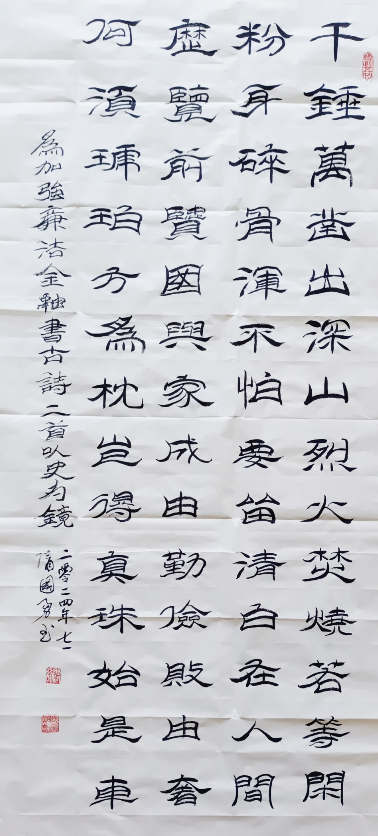 千錘萬凿出深山烈火焚燒若等閑
粉身碎骨渾不怕要留清白在人間
歷覽前賢國與家成由勤儉敗由奢
何須琥珀方為枕豈得真珠始是車
為加強廉洁金融書古詩二首以史为鏡
二零二四年七一
隋國勇书